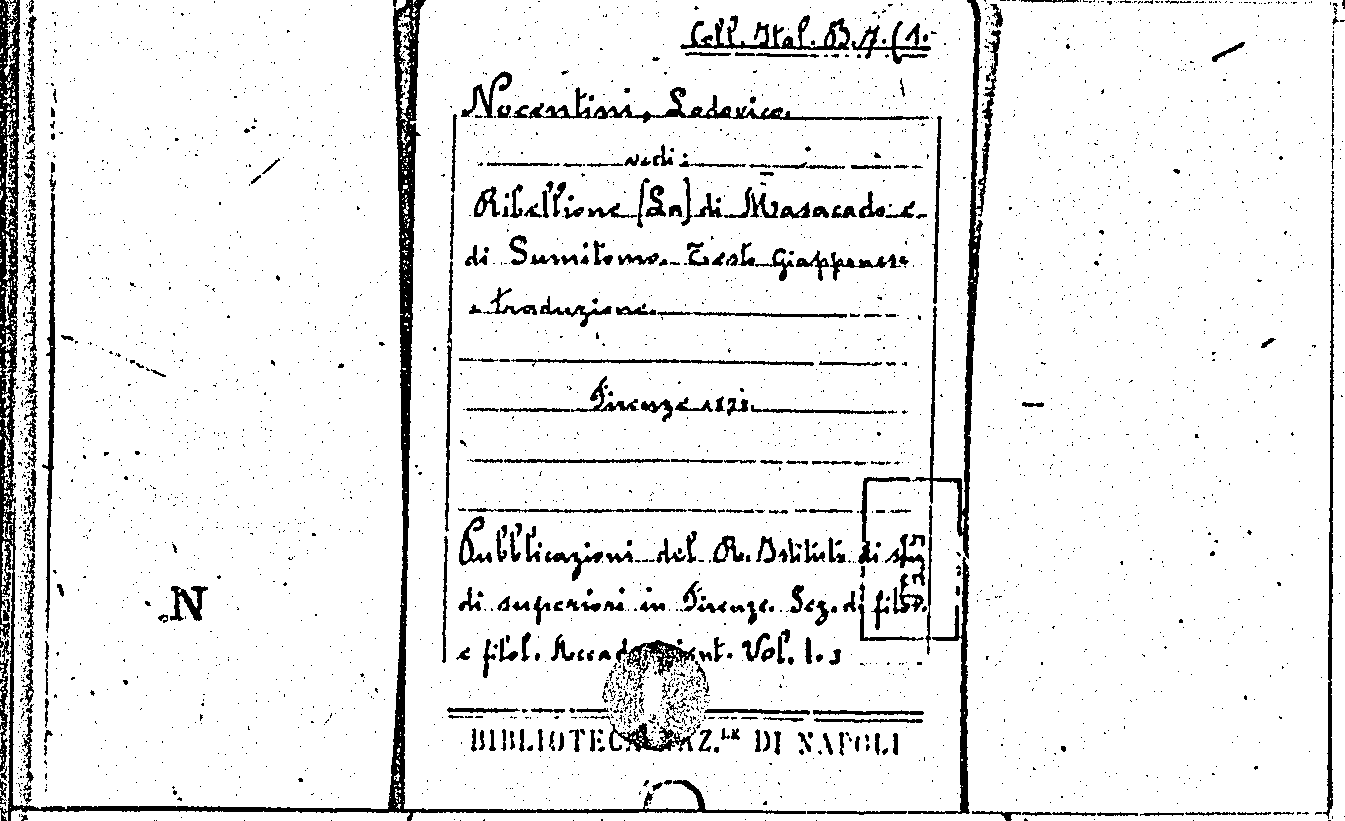 Coll. Ital. B. 7. (1.
Nocentini, Lodovico.
vedi:
Ribellione [La] di Masacado e
di Sumitomo. Testo Giapponese
e traduzione.
Firenze 1878.
Pubblicazioni del R. Istituto di stu
di superiori in Firenze. Sez. di filos.
e filol. Accad. Orient. Vol. 1. 3
N
BIBLIOTECA NAZ.LE DI NAPOLI